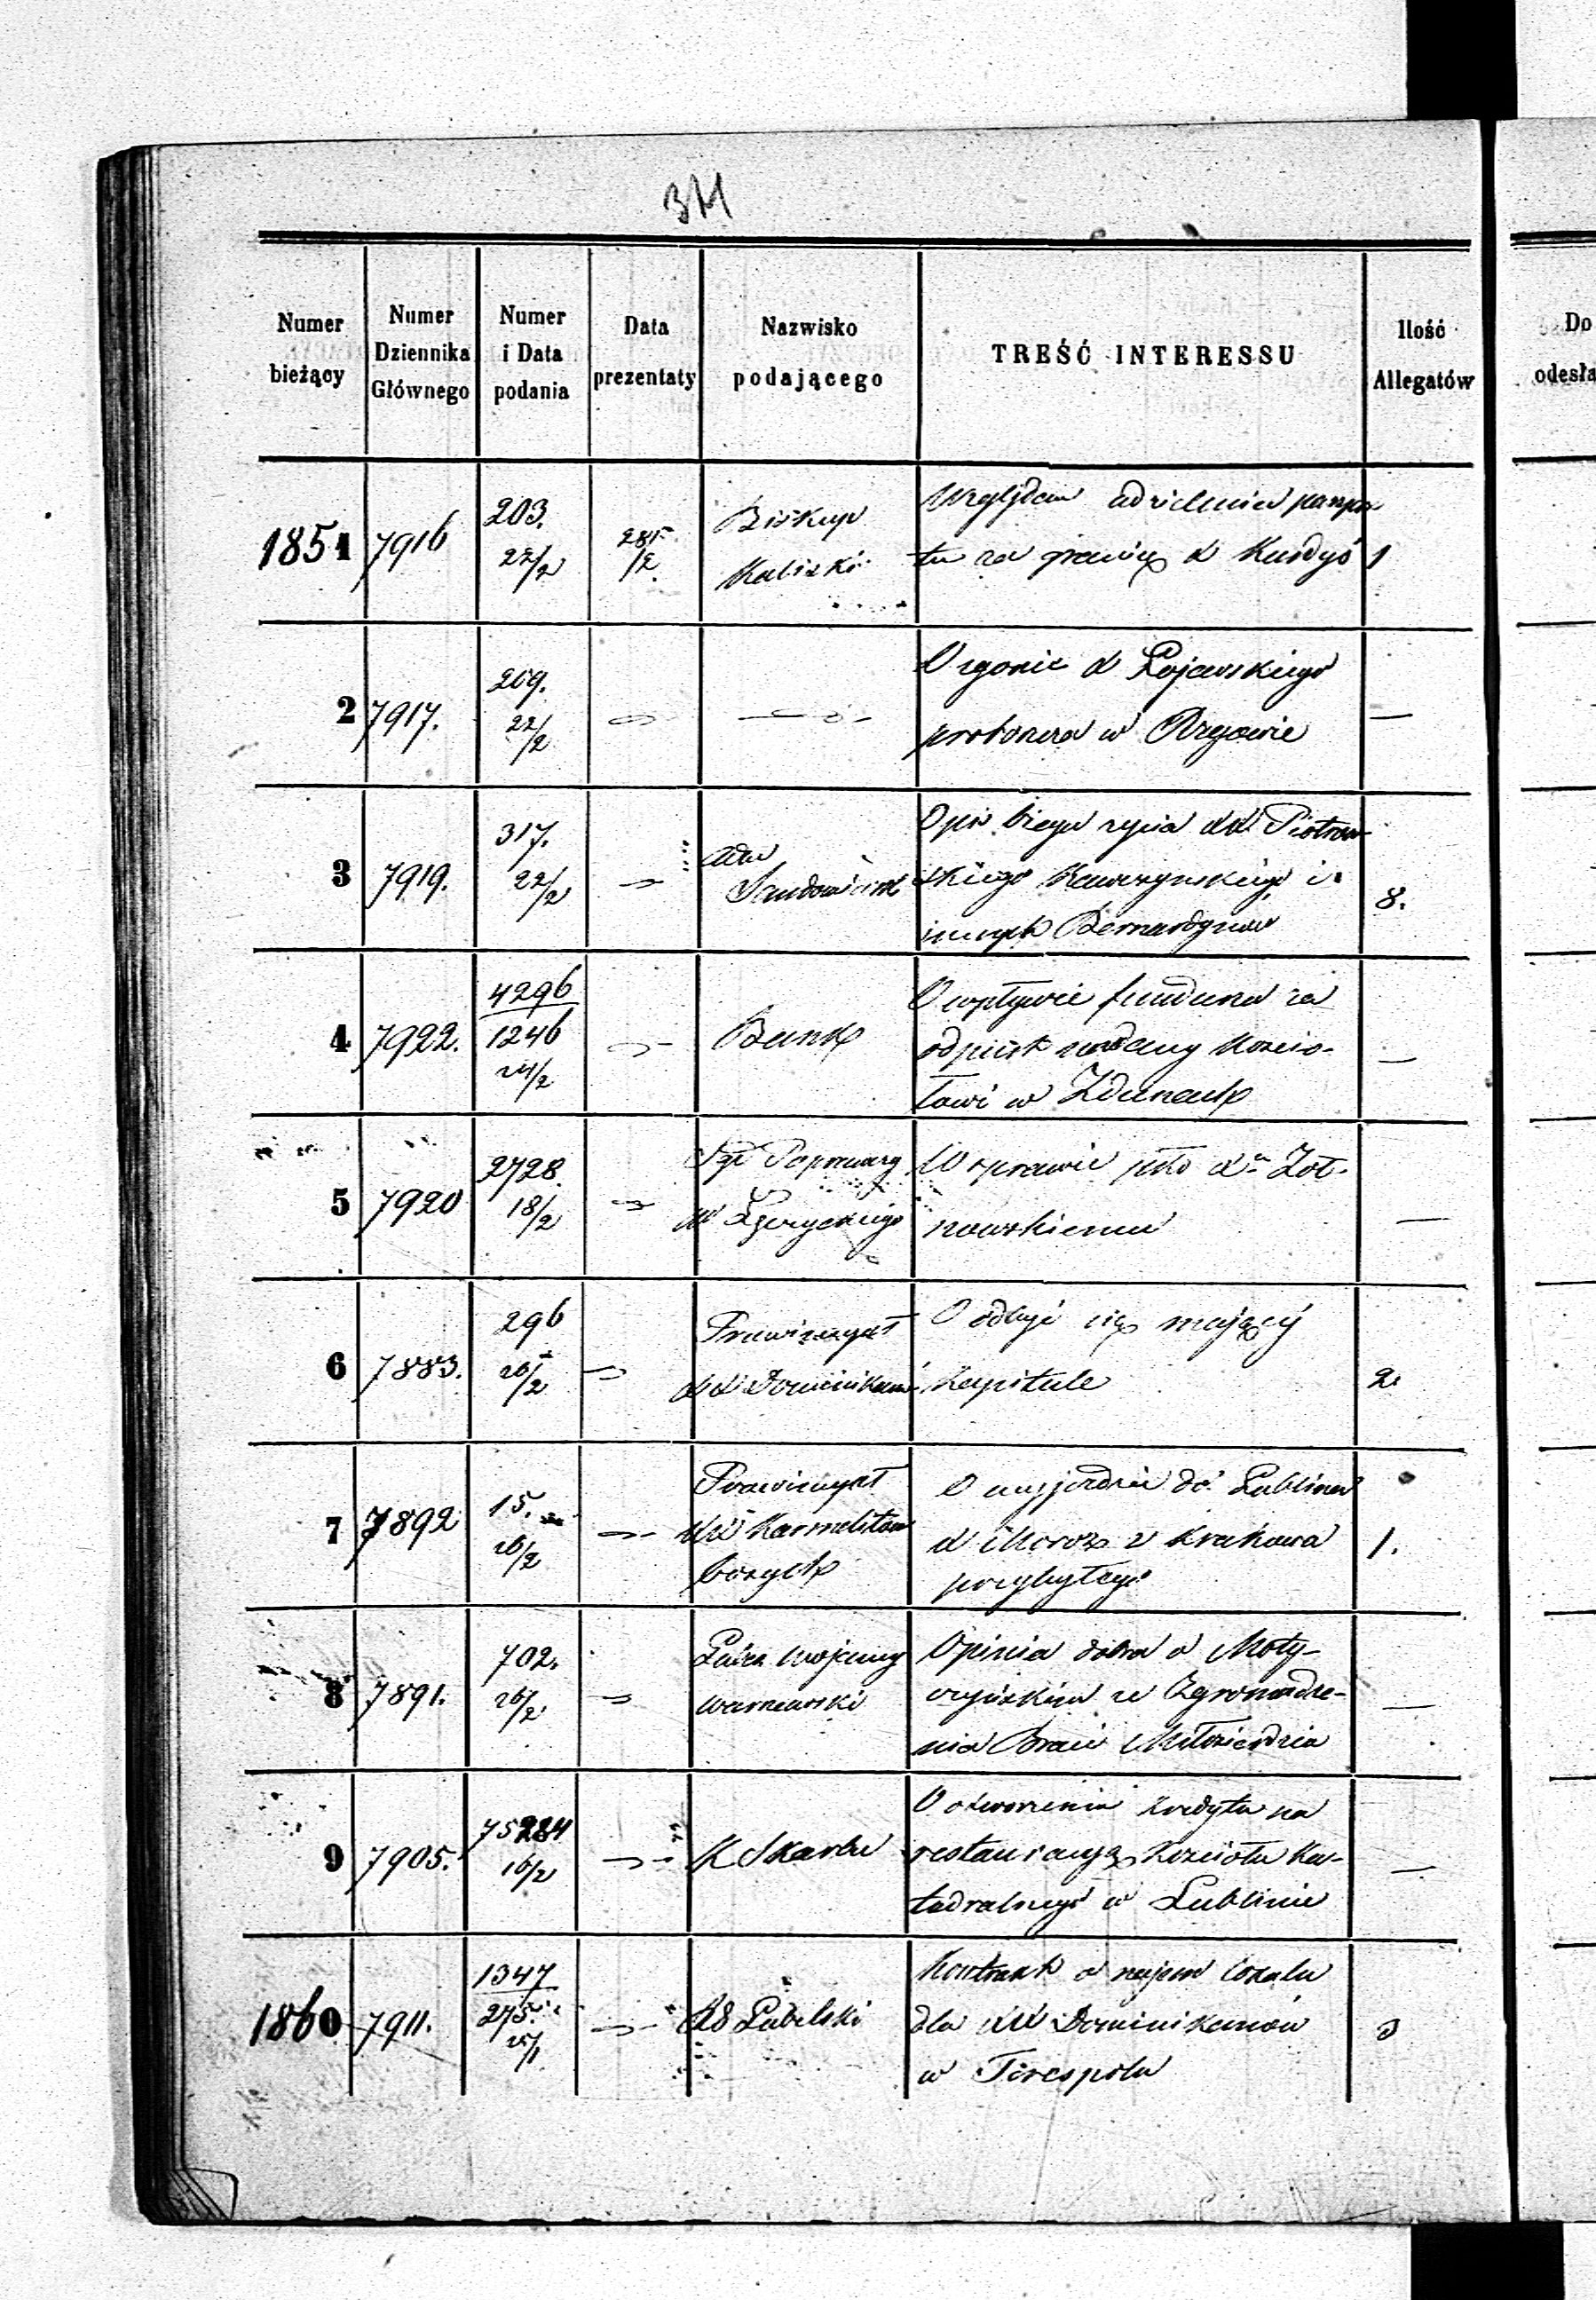 Numer bieżący
Numer Dziennika Głównego
Numer i Data podania
Data prezentaty
Nazwisko podającego
TREŚĆ INTERESSU
Ilość Allegatów
Do
odesła
1851 7916 203. 22/2 Biskup
Kaliski
Względem udzielenia paszpor
tu za granicę X 1
2 7917. 209. 22/2
O zgonie X Łojewskiego
proboszcza w Rzgowie —
3 7919. 317. 22/2
Adm
Opis biegu życia XX Piotrow
skiego i
innych Bernardynów 8.
4 7922. 4296
1246
24/2
Bank
O wpływie funduszu za
odpust nadany Kościo-
łowi w Zdunach —
5 7920 2728. 18/2
W sprawie pko Zoł-
nowskiemu —
6 7883. 296 26/2
Prowincyał
XX Dominikanów
O odbyć się mającej
Kapitule 2.
7 7892 15. 26/2
Prowincyał
XX Karmelitów
bosych
O wyjeździe do Lublina
X z Krakowa
przybyłego 1.
8 7891. 702. 26/2
wojenny
warszawski
Opinia dobra o
ze Zgromadze-
nia Braci Miłosierdzia —
9 7905. 75284 16/2
K Skarbu
O otworzeniu kredytu na
restauracyą kościoła Ka-
tedralnego w Lublinie —
1860 7911. 1347
275.
RG Lubelski
Kontrakt o najem lokalu
dla XX Dominikanów
w Terespolu